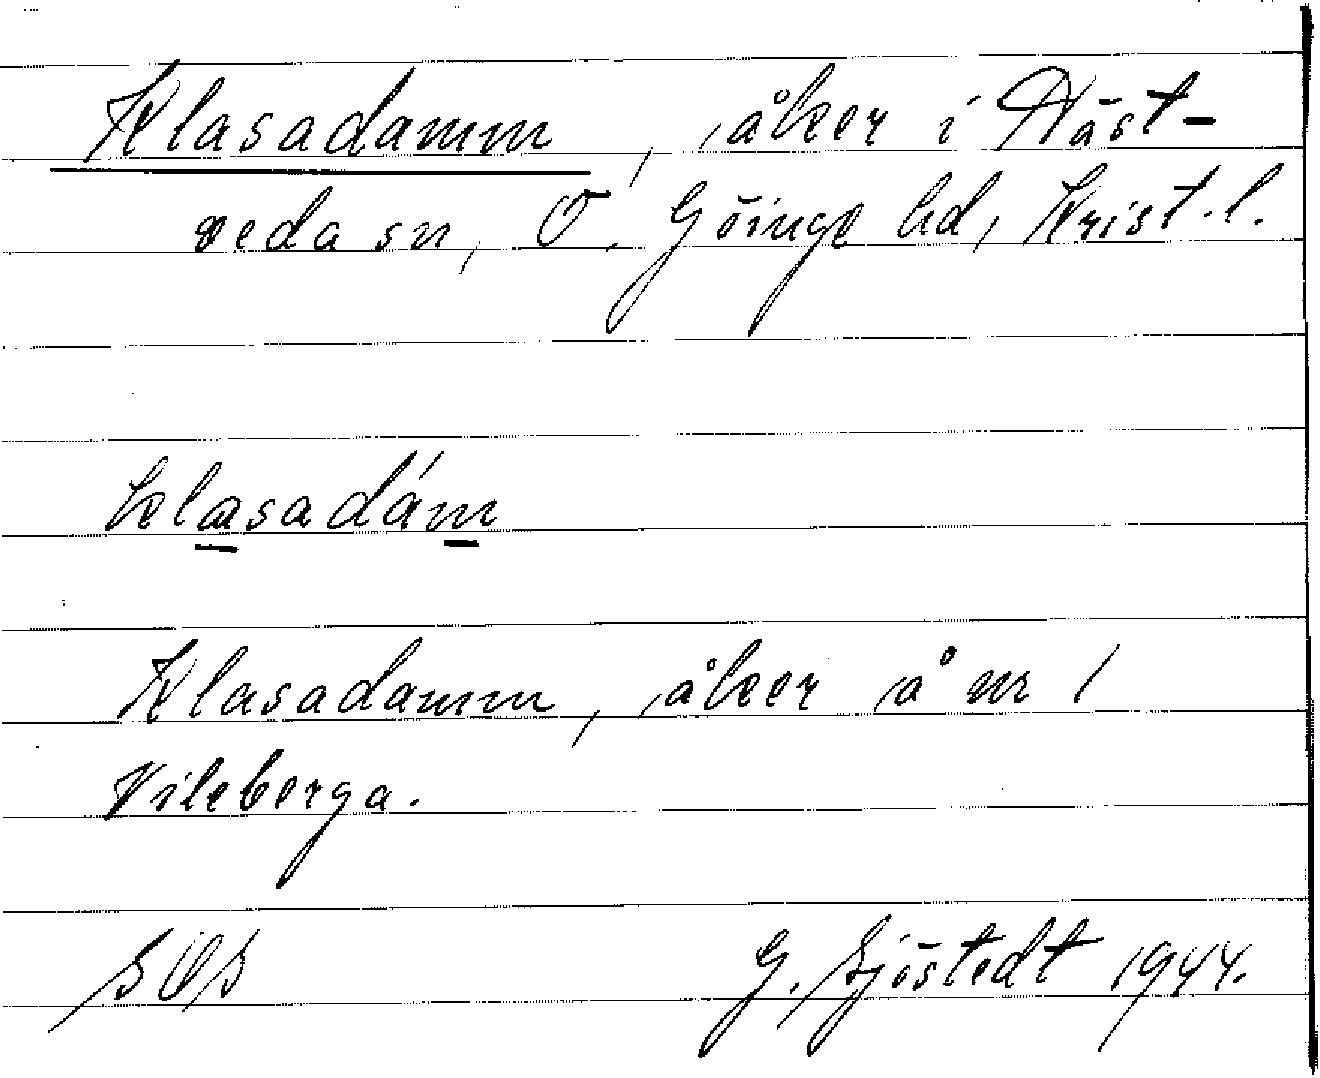 Klasadamm, åker i Näst-
veda sn, Ö. Göinge hd, Krist. l.
klasadám
Klasadamm, åker å nr 1
Vileberga.
SOS G. Sjöstedt 1944.